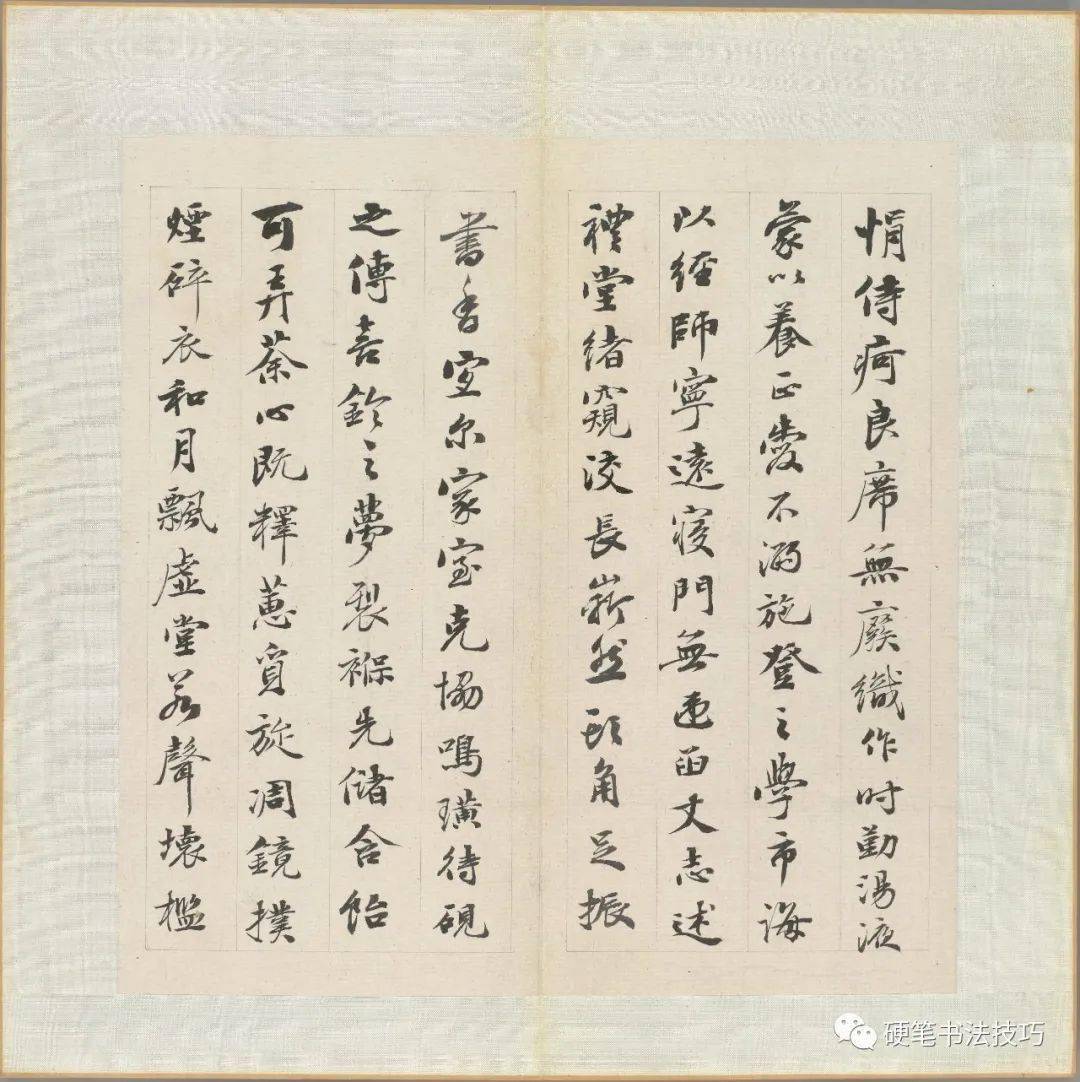 悁侍疴良席無廢織作时勤湯液
蒙以養正愛不溺施登之學市诲
以经師寧遠寝門無迕函丈志述
禮堂绪窺浚長嶄然頭角足振
書香宜尔家室克協鳴璜待硯
之傳喜鈴之夢裂褓先儲含飴
可弄荼心既釋蕙質旋凋鏡撲
煙碎衣和月飄虚堂若聲壞檻
硬笔书法技巧